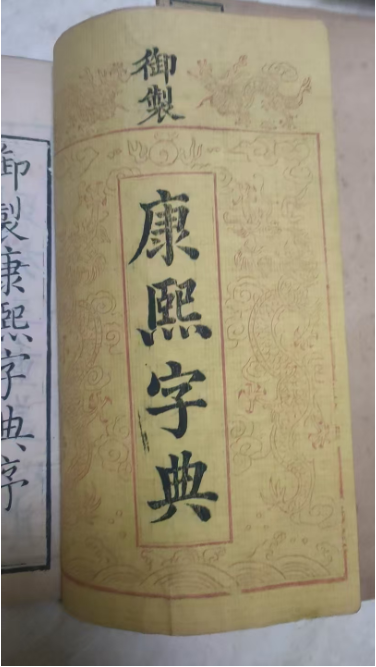 御製
康熙字典
御製康熙字典序